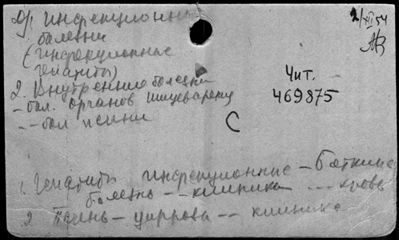 инфекционн
болезни
(инфекционные
гепатиты)
2/XI 54
2. Внутренние болезни
– бол. органов пищеварен
– – бол печени
Чит.
469875
С
1. Гепатиты инфекционные – Боткина
болезнь – клиника – – – кровь
2. Печень – цирроз – – клиника